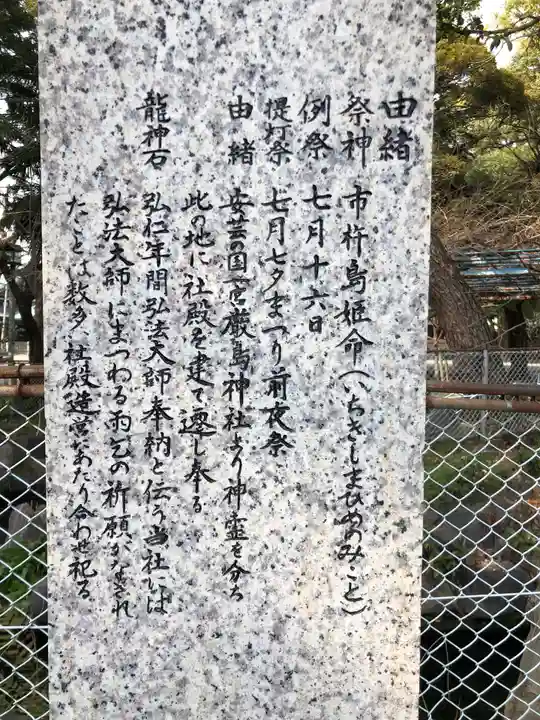 由緒
祭神 市杵島姫命(いちきしまひめのみこと)
例祭 七月十六日
提灯祭 七月七夕まつり前夜祭
由緒 安芸の国一宮厳島神社より神霊を分ち
此の地に社殿を建て遷し奉る
龍神石 弘仁年間弘法大師奉納と伝う当社には
弘法大師にまつわる雨乞の祈願がなされ
たことは数多、社殿造営にあたり合わせ祀る